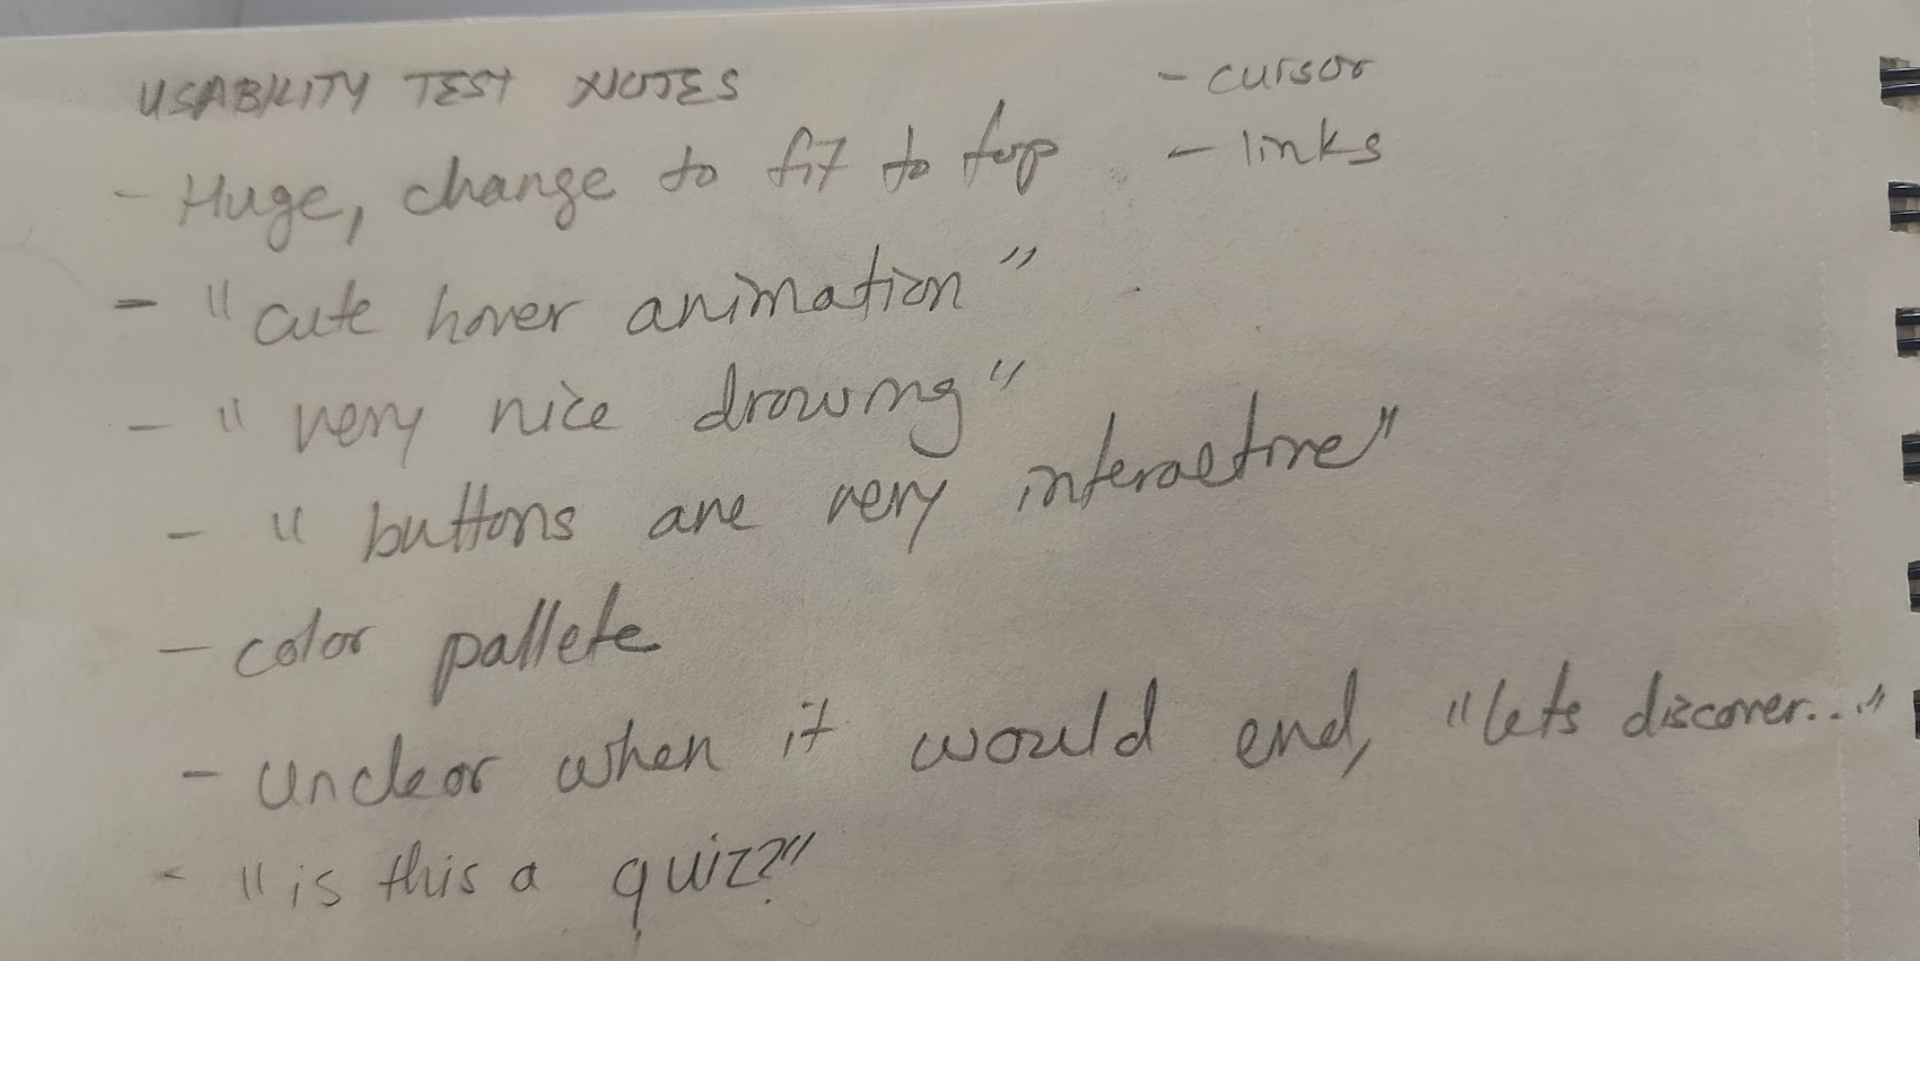 USABILITY TEST NOTES
- Huge, change to fit to top
- "cute hover animation"
- "very nice drawing"
- "buttons are very interactive"
- color pallete
- Unclear when it would end, "lets discover..."
- "is this a quiz?"
- cursor
- links